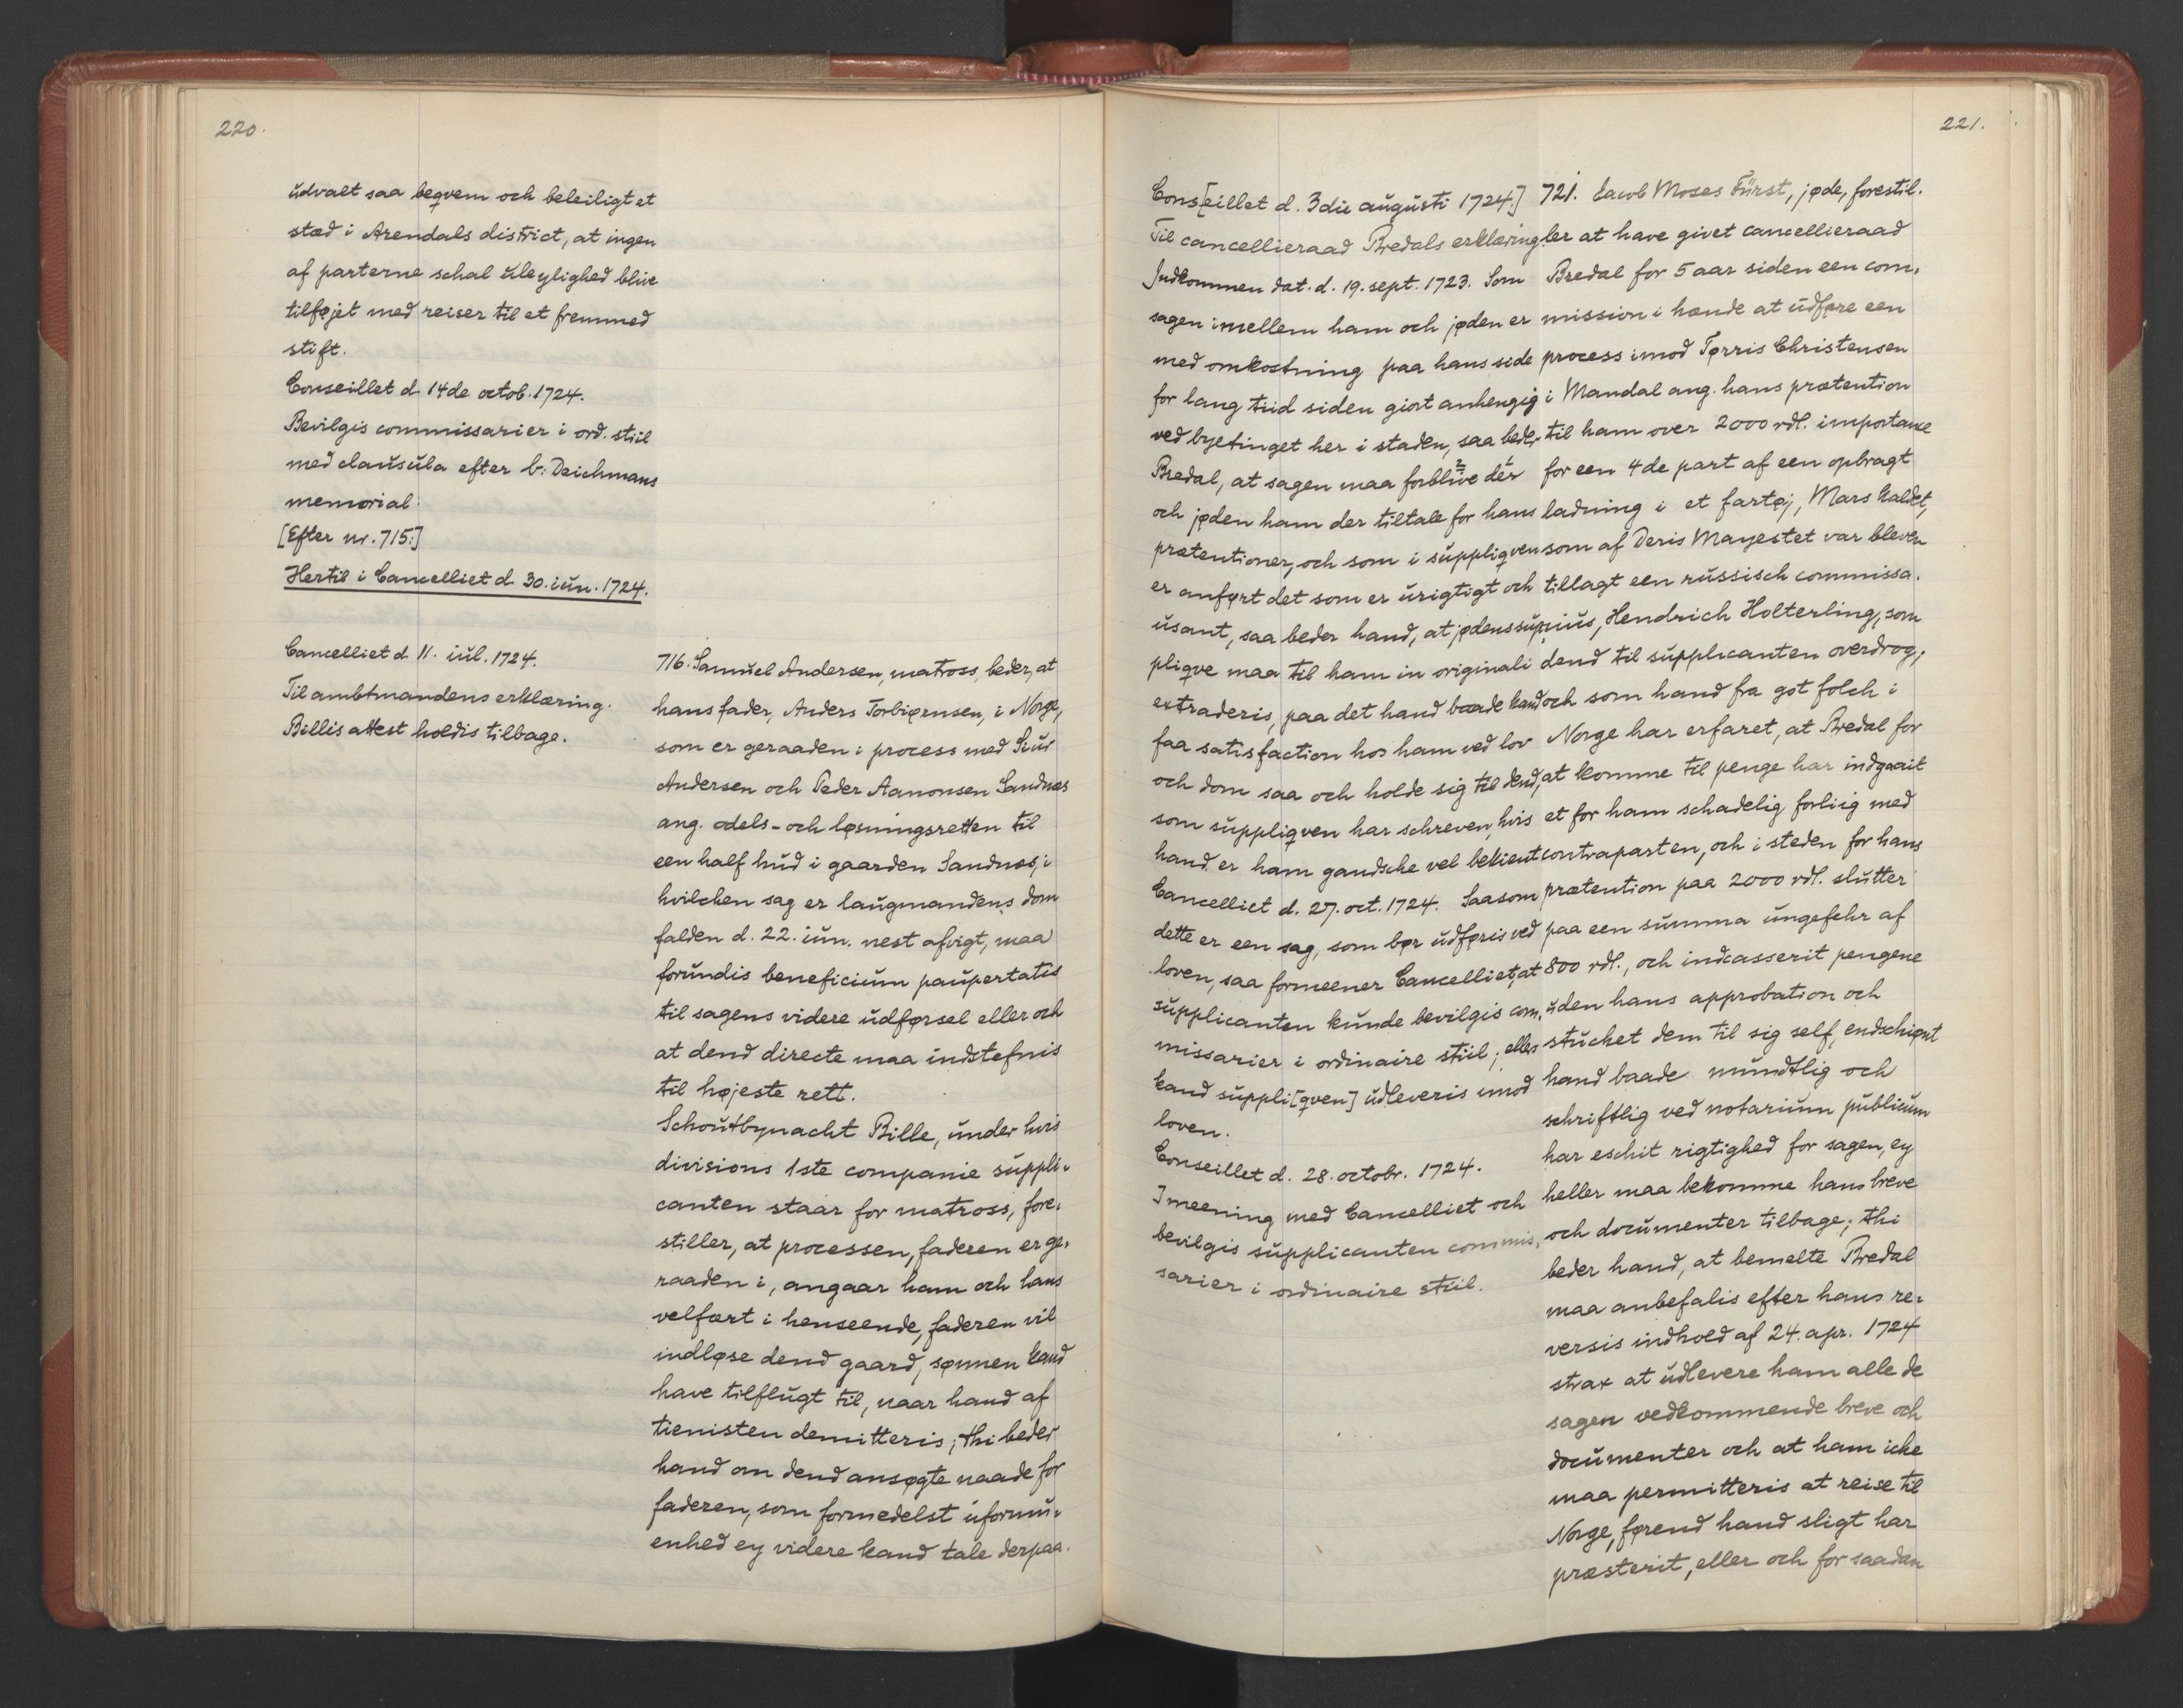 220.
udvalt saa beqvem och beleiligt et
stæd i Arendals district, at ingen
af parterne schal uleylighed blive
tilføjet med reiser til et fremmed
stift.
Conseillet d. 14de octob. 1724.
Bevilgis commissarier i ord. stiil
med clausula efter b: Deichmans
memorial.
[Efter nr. 715:]
Hertil i Cancelliet d. 30. iun. 1724.
Cancelliet d. 11. iul. 1724.
Til ambtmandens erklæring.
Billis attest holdis tilbage.
716. Samuel Andersen, matross, beder, at
hans fader, Anders Torbiørnsen, i Norge,
som er geraaden i process med Siur
Andersen och Peder Aamonsen Sandnæs
ang. odels- och løsningsretten til
een half hud i gaarden Sandnæs, i
hvilchen sag er laugmandens dom
falden d. 22. iun. nest afvigt, maa
forundis beneficium paupertatis
til sagens videre udførsel eller och
at dend directe maa indstefnis
til højeste rett.
Schoutbynacht Bille, under hvis
divisions 1ste companie suppli-
canten staar for matross, fore-
stiller, at processen, faderen er ge-
raaden i, angaar ham och hans
velfært i henseende, faderen vil
indløse dend gaard, sønnen kand
have tilflugt til, naar hand af
tienisten demitteris; thi beder
hand om dend ansøgte naade for
faderen, som formedelst uformu-
enhed ey videre kand tale derpaa.
221.
Cons[eillet d. 3die augusti 1724.]
Til cancellieraad Bredals erklæring
Indkommen dat. d. 19. sept. 1723. Som
sagen imellem ham och jøden er
med omkostning paa hans side
for lang tiid siden giort anhengig
ved byetinget her i staden, saa beder
Bredal, at sagen maa forblive der
och jøden ham der tiltale for hans
prætentioner, och som i suppliqven
er anført det som er urigtigt och
usant, saa beder hand, at jødens sup-
pliqve maa til ham in originali
extraderis, paa det hand baade kand
faa satisfaction hos ham ved lov
och dom saa och holde sig til dend,
som suppliqven har schreven, hvis
hand er ham gandsche vel bekient
Cancelliet d. 27. oct. 1724. Saasom
dette er een sag, som bør udføris ved
loven, saa formeener Cancelliet, at
supplicanten kunde bevilgis com-
missarier i ordinaire stiil; elles
kand suppli[qven] udleveris imod
loven.
Conseillet d. 28. octobr. 1724.
I meening med Cancelliet och
bevilgis supplicanten commis-
sarier i ordinaire stiil.
721. Jacob Moses Fürst, jøde, forestil-
ler at have givet cancellieraad
Bredal for 5 aar siden een com-
mission i hænde at udføre een
process imod Tørris Christensen
i Mandal ang. hans prætention
til ham over 2000 rdl. importance
for een 4de part af een opbragt
ladning i et fartøj, Mars kaldet,
som af Deris Mayestet var bleven
tillagt een russisch commissa-
rius, Hendrich Holterling, som
dend til supplicanten overdrog;
och som hand fra got folch i
Norge har erfaret, at Bredal for
at komme til penge har indgaait
et for ham schadelig forliig med
contraparten, och i steden for hans
prætention paa 2000 rdl. slutter
paa een summa ungefehr af
800 rdl., och indcasserit pengene
uden hans approbation och
stuchet dem til sig self, endschiønt
hand baade mundtlig och
schriftlig ved notarium publicum
har eschit rigtighed for sagen, ey
heller maa bekomme hans breve
och documenter tilbage; thi
beder hand, at bemelte Bredal
maa anbefalis efter hans re-
versis indhold af 24. apr. 1724
strax at udlevere ham alle de
sagen vedkommende breve och
documenter och at ham icke
maa permitteris at reise til
Norge, førend hand sligt har
præsterit, eller och for saadan